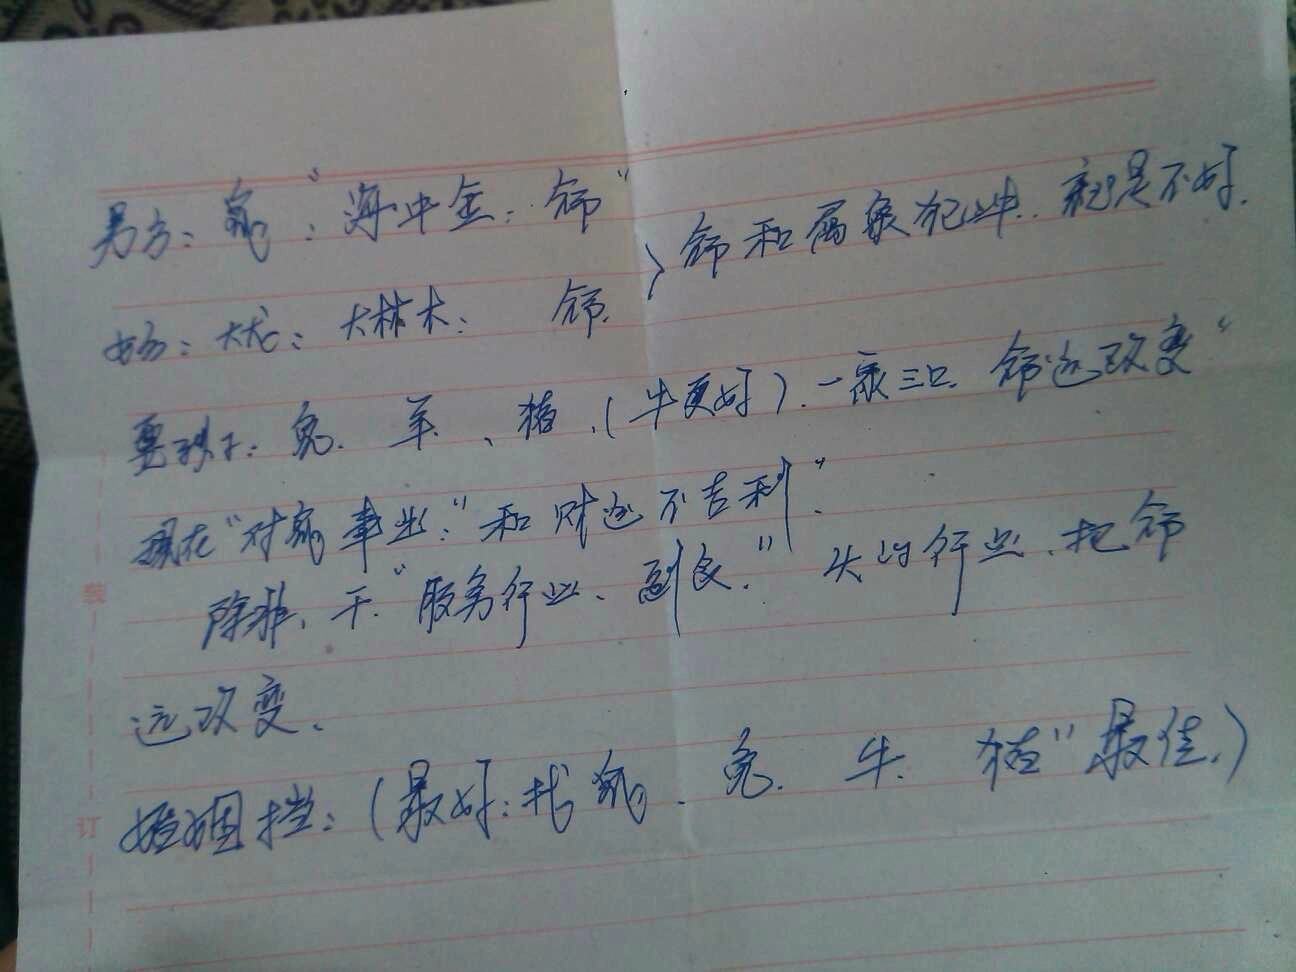 男方：鼠：“海中金：命”
女方：大龙：大林木： 命． 〉命和属象犯冲．就是不好．
要孩子：兔．羊、猪、（牛更好）．一家三口．命运改变“
现在“对鼠事业：”和财运不吉利”．
除非、干．“服务行业、副食．”火的行业、把命
运改变、
婚姻挡：（最好：找鼠、兔．牛．猪”最佳．）
装
订